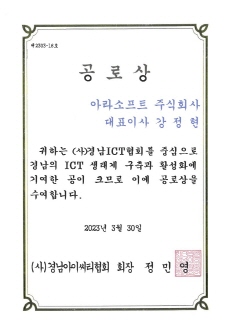 제2303-16호
공로상
아라소프트 주식회사
대표이사 강정현
귀하는 (사)경남ICT협회를 중심으로
경남의 ICT 생태계 구축과 활성화에
기여한 공이 크므로 이에 공로상을
수여합니다.
2023년 3월 30일
(사)경남아이씨티협회 회장 정민영